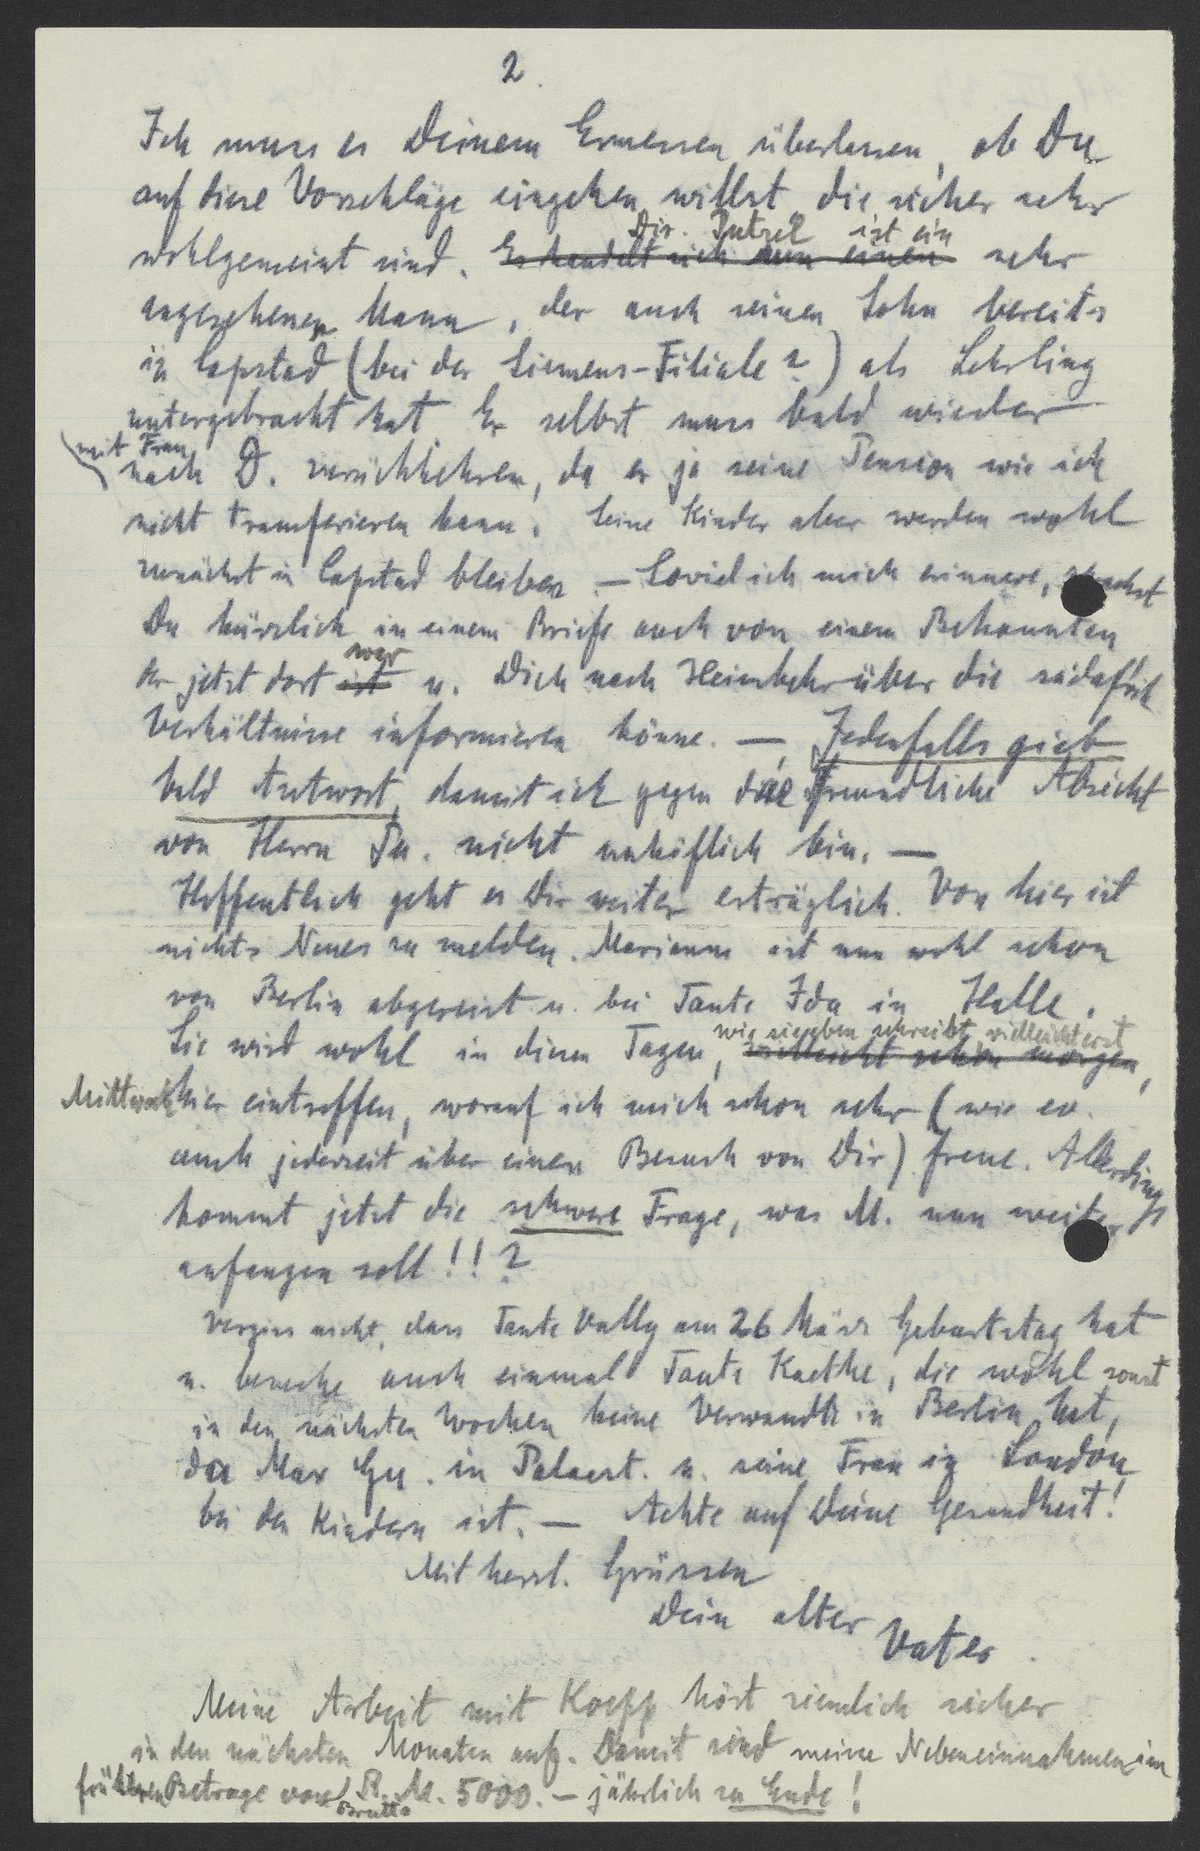 2.
Ich muss es Deinem Ermessen überlassen, ob Du
auf diese Vorschläge eingehen willst, die sicher sehr
wohlgemeint sind. Es handelt sich um einen Dir. Putzel ist ein sehr
angesehener Mann, der auch seinen Sohn bereits
in Capstad (bei der Siemens-Filiale?) als Lehrling
untergebracht hat. Er selbst muss bald wieder
(mit Frau
nach D. zurückkehren, da er ja seine Pension wie ich
nicht transferieren kann. Seine Kinder aber werden wohl
zunächst in Capstad bleiben. — Soviel ich mich erinnere, sprachst
Du kürzlich in einem Briefe auch von einem Bekannten
der jetzt dort ist war u. Dich nach Heimkehr über die südafrik
Verhältnisse informieren könne. — Jedenfalls gieb
bald Antwort, damit ich gegen die freundliche Absicht
von Herrn Pu. nicht unhöflich bin. —
Hoffentlich geht es Dir weiter erträglich. Von hier ist
nichts Neues zu melden. Marianne ist nun wohl schon
von Berlin abgereist u. bei Tante Ida in Halle.
Sie wird wohl in diesen Tagen, vielleicht schon morgen, wie sie eben schreibt, vielleicht erst
Mittwoch hier eintreffen, worauf ich mich schon sehr (wie ev.
auch jederzeit über einen Besuch von Dir) freue. Allerdings
kommt jetzt die schwere Frage, was M. nun weiter
anfangen soll!!?
Vergiss nicht, dass Tante Vally am 26 März Geburtstag hat
u. besuche auch einmal Tante Kaethe, die wohl sonst
in den nächsten Wochen keine Verwandte in Berlin hat,
da Max Gu. in Palaest. u. seine Frau in London
bei den Kindern ist. — Achte auf Deine Gesundheit!
Mit herzl. Grüssen
Dein alter Vater.
Meine Arbeit mit Koepp hört ziemlich sicher
in den nächsten Monaten auf. Damit sind meine Nebeneinnahmen im
früheren Betrage von R. M. 5000.— jährlich zu Ende!
Brutto